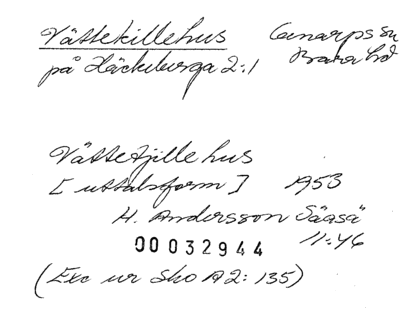 Vättekillehus Genarps sn
på Häckeberga 2:1 Bara hd
Vättetjillehus
[uttalsform] 1953
H. Andersson Säaså
00032944 11:46
(Exc ur Sko A2: 135)